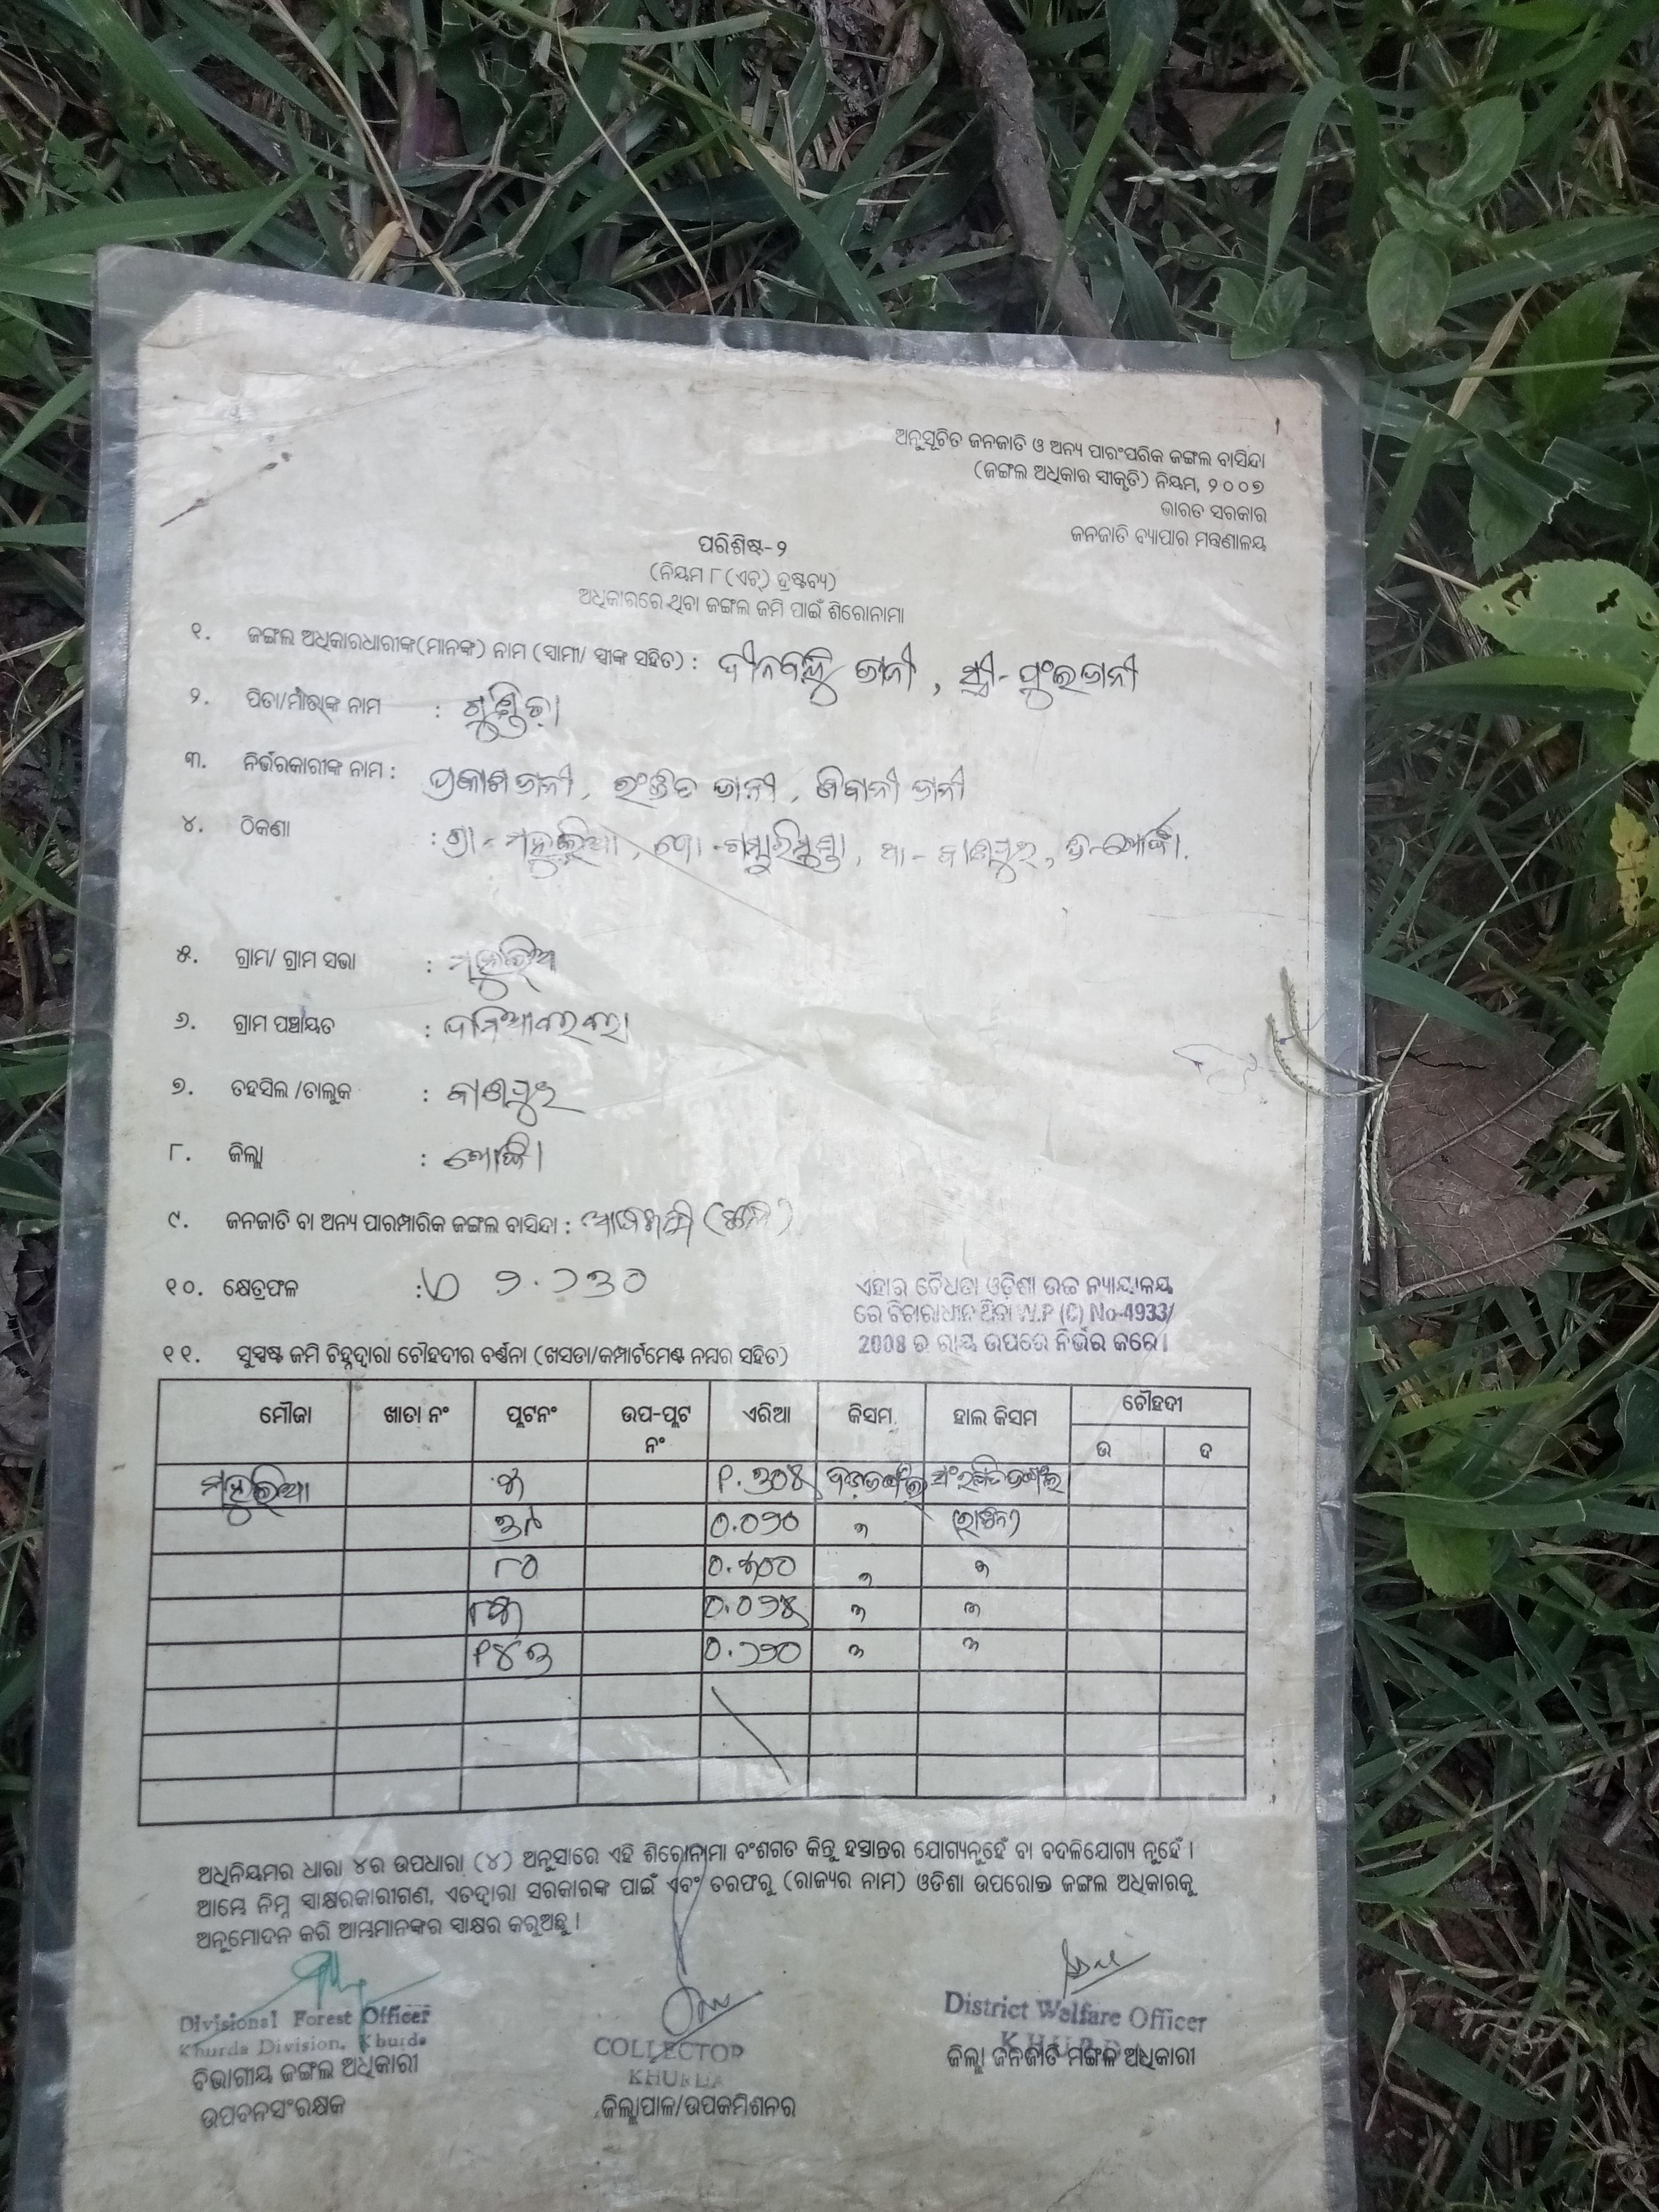 ଅନୁସୂଚିତ ଜନଜାତି ଓ ଅନ୍ୟ ପାରଂପରିକ ଜଙ୍ଗଲ ବାସିନ୍ଦା
(ଜଙ୍ଗଲ ଅଧିକାର ସ୍ୱୀକୃତି) ନିୟମ, ୨୦୦୭
ଭାରତ ସରକାର
ଜନଜାତି ବ୍ୟାପାର ମନ୍ତ୍ରଣାଳୟ
ପରିଶିଷ୍ଟ-୨
(ନିୟମ ୮(ଏଚ୍) ଦ୍ରଷ୍ଟବ୍ୟ)
ଅଧିକାରରେ ଥିବା ଜଙ୍ଗଲ ଜମି ପାଇଁ ଶିରୋନାମା
୧. ଜଙ୍ଗଲ ଅଧିକାରଧାରୀଙ୍କ(ମାନଙ୍କ) ନାମ (ସ୍ୱାମୀ/ ସ୍ତ୍ରୀଙ୍କ ସହିତ) : ଦୀନବନ୍ଧୁ ଜାନୀ , ସ୍ତ୍ରୀ-
୨. ପିତା/ମାତାଙ୍କ ନାମ : ଗୁଣ୍ଡିଚା
୩. ନିର୍ଭରକାରୀଙ୍କ ନାମ : ପ୍ରକାଶ ଜାନୀ , ରଂଜିତ ଜାନୀ , ଶିବାନୀ ଜାନୀ
୪. ଠିକଣା : ଗ୍ରା - ମହୁରିଆ , ପୋ - , ଥା - ବାଣପୁର , ଜି-ଖୋର୍ଦ୍ଧା .
୫. ଗ୍ରାମ/ ଗ୍ରାମ ସଭା : ମହୁରିଆ
୬. ଗ୍ରାମ ପଞ୍ଚାୟତ :
୭. ତହସିଲ /ତାଲୁକ : ବାଣପୁର
୮. ଜିଲ୍ଲା : ଖୋର୍ଦ୍ଧା
୯. ଜନଜାତି ବା ଅନ୍ୟ ପାରମ୍ପାରିକ ଜଙ୍ଗଲ ବାସିନ୍ଦା : ଆଦିବାସୀ
୧୦. କ୍ଷେତ୍ରଫଳ : ୨.୨୩୦
ଏହାର ବୈଧତା ଓଡ଼ିଶା ଉଚ୍ଚ ନ୍ୟାୟାଳୟ
ରେ ବିଚାରାଧୀନ ଥିବା W.P (C) No-4933/
2008 ର ରାୟ ଉପରେ ନିର୍ଭର କରେ ।
୧୧. ସୁସ୍ପଷ୍ଟ ଜମି ଚିହ୍ନଦ୍ୱାରା ଚୌହଦୀର ବର୍ଣ୍ଣନା (ଖସଡା/କମ୍ପାର୍ଟମେଣ୍ଟ ନମ୍ବର ସହିତ)
ମୌଜା ଖାତା ନଂ ପ୍ଲଟନଂ ଉପ-ପ୍ଲଟ ନଂ ଏରିଆ କିସମ ହାଲ କିସମ ଚୌହଦୀ
ଉ ଦ
ମହୁରିଆ ୫ ୧.୩୦୫
୩୯ ୦.୦୨୦ "
୮୦ ୦.୭୦୦ " "
୮୫ ୦.୦୨୫ " "
୧୪୩ ୦.୨୨୦ " "
ଅଧିନିୟମର ଧାରା ୪ର ଉପଧାରା (୪) ଅନୁସାରେ ଏହି ଶିରୋନାମା ବଂଶଗତ କିନ୍ତୁ ହସ୍ତାନ୍ତର ଯୋଗ୍ୟନୁହେଁ ବା ବଦଳିଯୋଗ୍ୟ ନୁହେଁ ।
ଆମ୍ଭେ ନିମ୍ନ ସାକ୍ଷରକାରୀଗଣ, ଏତଦ୍ୱାରା ସରକାରଙ୍କ ପାଇଁ ଏବଂ ତରଫରୁ (ରାଜ୍ୟର ନାମ) ଓଡିଶା ଉପରୋକ୍ତ ଜଙ୍ଗଲ ଅଧିକାରକୁ
ଅନୁମୋଦନ କରି ଆମ୍ଭମାନଙ୍କର ସ୍ୱାକ୍ଷର କରୁଅଛୁ ।
Divisional Forest Officer
Khurda Division, Khurda
ବିଭାଗୀୟ ଜଙ୍ଗଲ ଅଧିକାରୀ
ଉପବନସଂରକ୍ଷକ
COLLECTOR
KHURDA
ଜିଲ୍ଲାପାଳ/ଉପକମିଶନର
District Welfare Officer
KHURDA
ଜିଲ୍ଲା ଜନଜାତି ମଙ୍ଗଳ ଅଧିକାରୀ